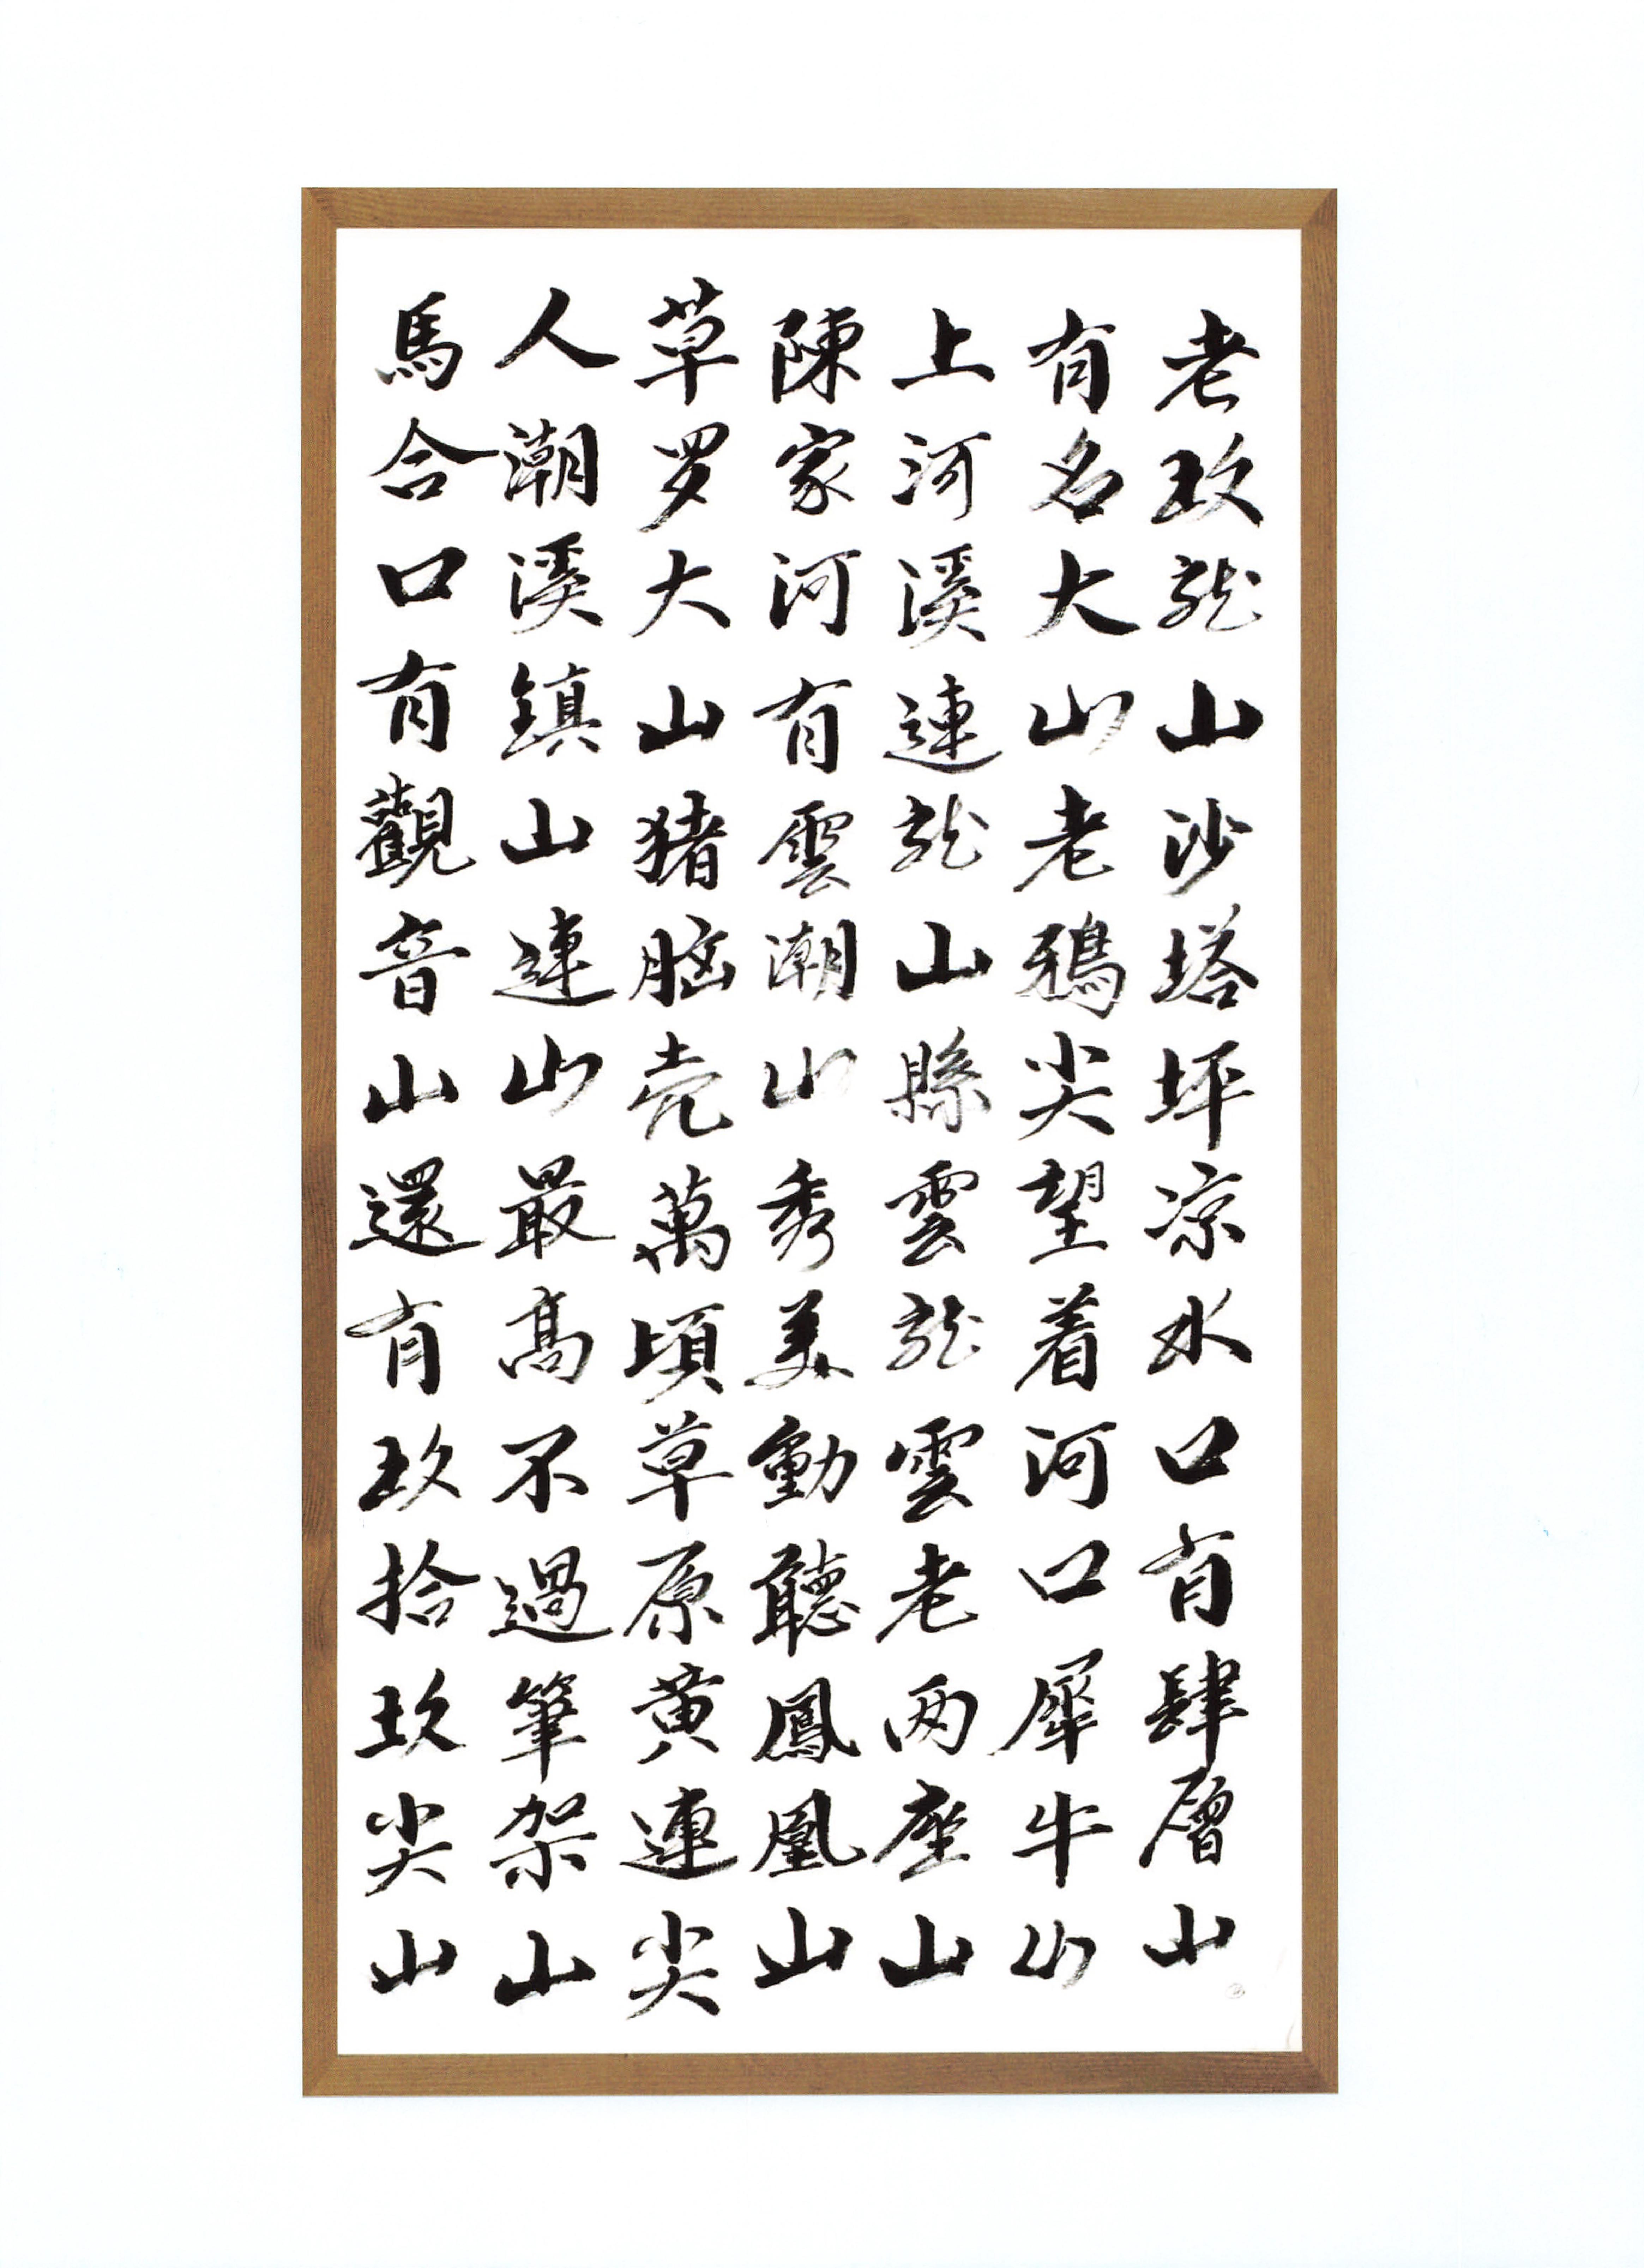 老玖龙山沙塔坪凉水口有肆層山
有名大山老鴉尖望着河口犀牛山
上河溪連龙山縣雲龙雲老两座山
陳家河有雲潮山秀美動聽鳳凰山
草罗大山猪脑壳萬頃草原黄連尖
人潮溪鎮山連山最高不過筆架山
馬合口有觀音山還有玖拾玖尖山